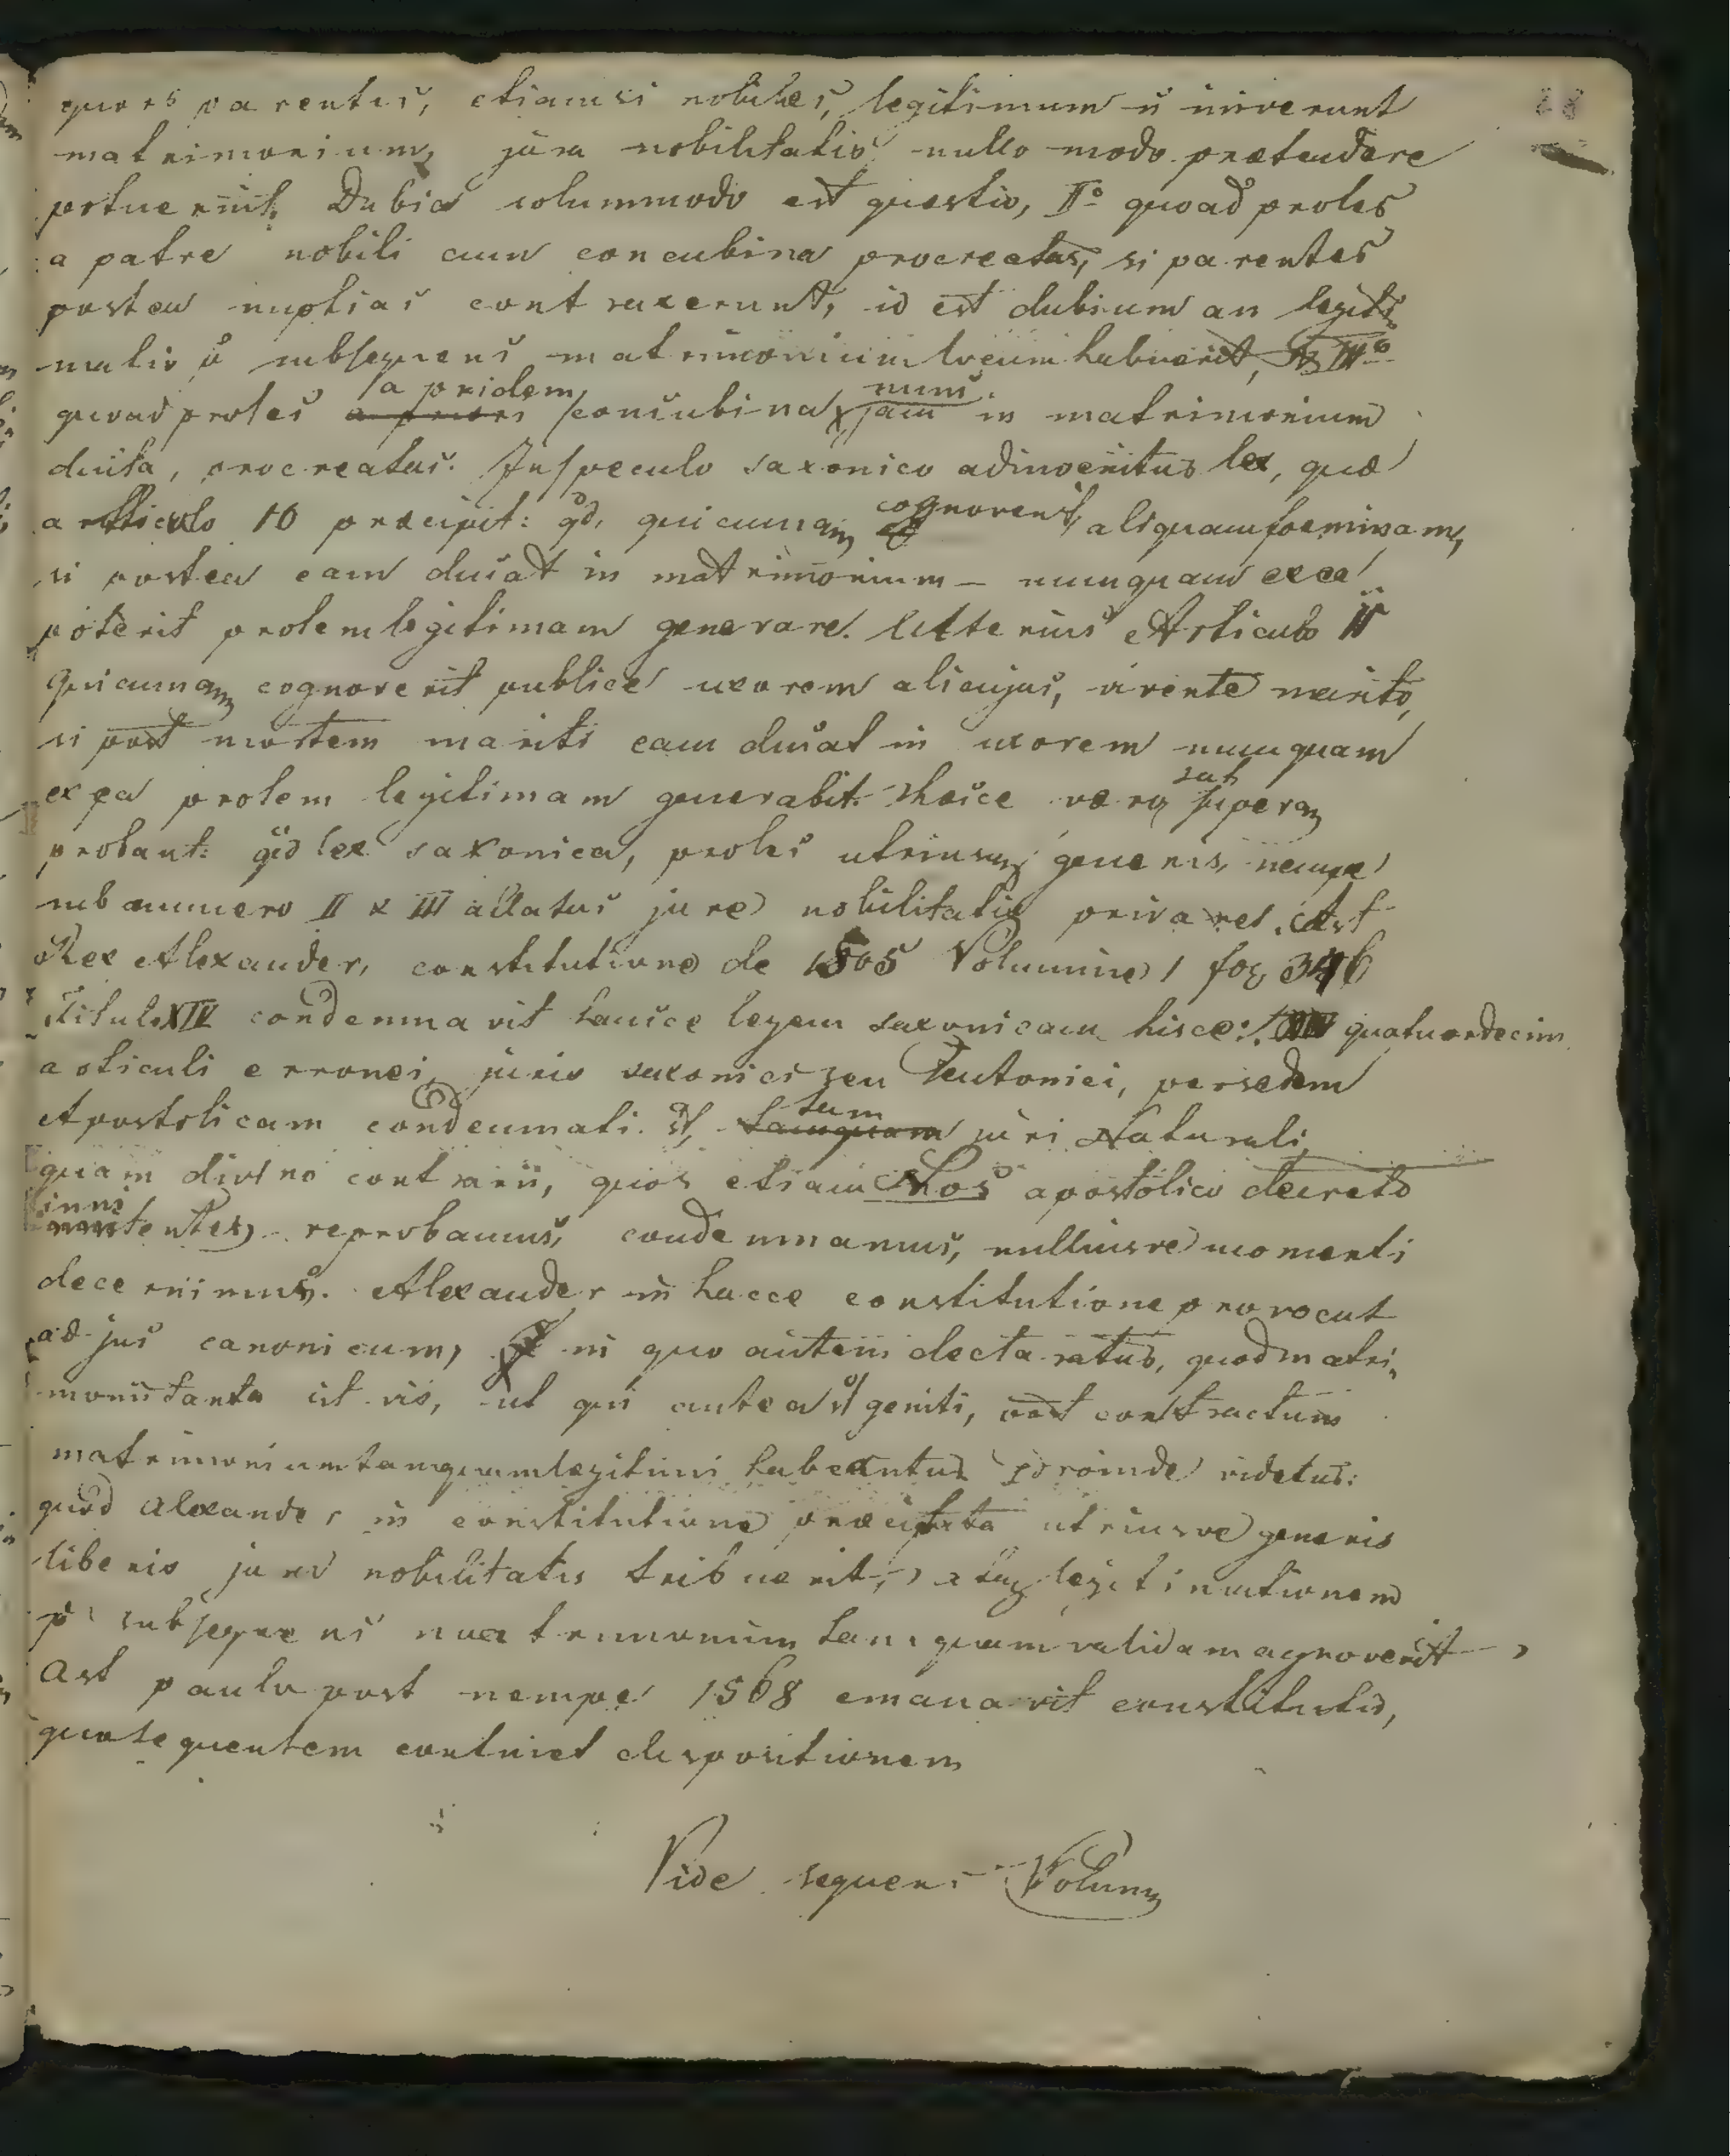 quors parentes, etiamsi nobiles, legitimum ñ iniverunt
matrimonium, jura nobilitatis nullo modo prætendere
potuerint. Dubia solummodo est quæstio, IIº quoad proles
a patre nobili cum concubina procreatas, si parentes
postea nuptias contraxerunt, id est dubium an legiti
matio p subsequens matrimonium locum habuerit, & IIIº
quoad proles a pridem concubina, nunc in matrimonium
ducta, procreatas. In speculo saxonico adinvenitur lex, quæ
articulo 10 præcipit: qd, quicunq cognoverit aliquam foeminam,
si postea eam ducat in matrimonium – numquam ex ea
poterit prolem legitimam generare. Ulterius Articulo II
Quicunq cognoverit publice uxorem alicujus, vivente marito,
si post mortem mariti eam ducat in uxorem numquam
ex ea prolem legitimam generabit. Hæice verq satq
probant: qd lex saxonica, proles utriusq generis, nempe
sub numero II & III allatas jure nobilitatis privaret. Ast
Rex Alexander, constitutione de 1505 Volumine 1 fog 346
Titulo XIV condemnavit hancce legem saxonicam hisce: quatuordecim
articuli erronei, juris saxonici seu Teutonici, per sedem
Apostolicam condemnati. st, tum juri Naturali,
quam divino contrarii, quos etiam Nos apostolico decreto
innitentes, reprobamus, condemnamus, nulliusve momenti
decernimus. Alexander in hacce constitutione provocat
ad jus canonicum, in quo autem declaratur, quod matri,
monii tanta sit vis, ut qui antea st geniti, post contractum
matrimonium tamquam legitimi habeantur proinde videtur:
quod Alexander in constitutione præcitata utriusve generis
liberis jura nobilitatis tribuerit, legitimationem
p subsequens matrimonium tamquam validam agnoverit
Ast paulo post nempe 1568 emanavit constitutio,
quæ sequentem continet dispositionem
Vide sequens Volum